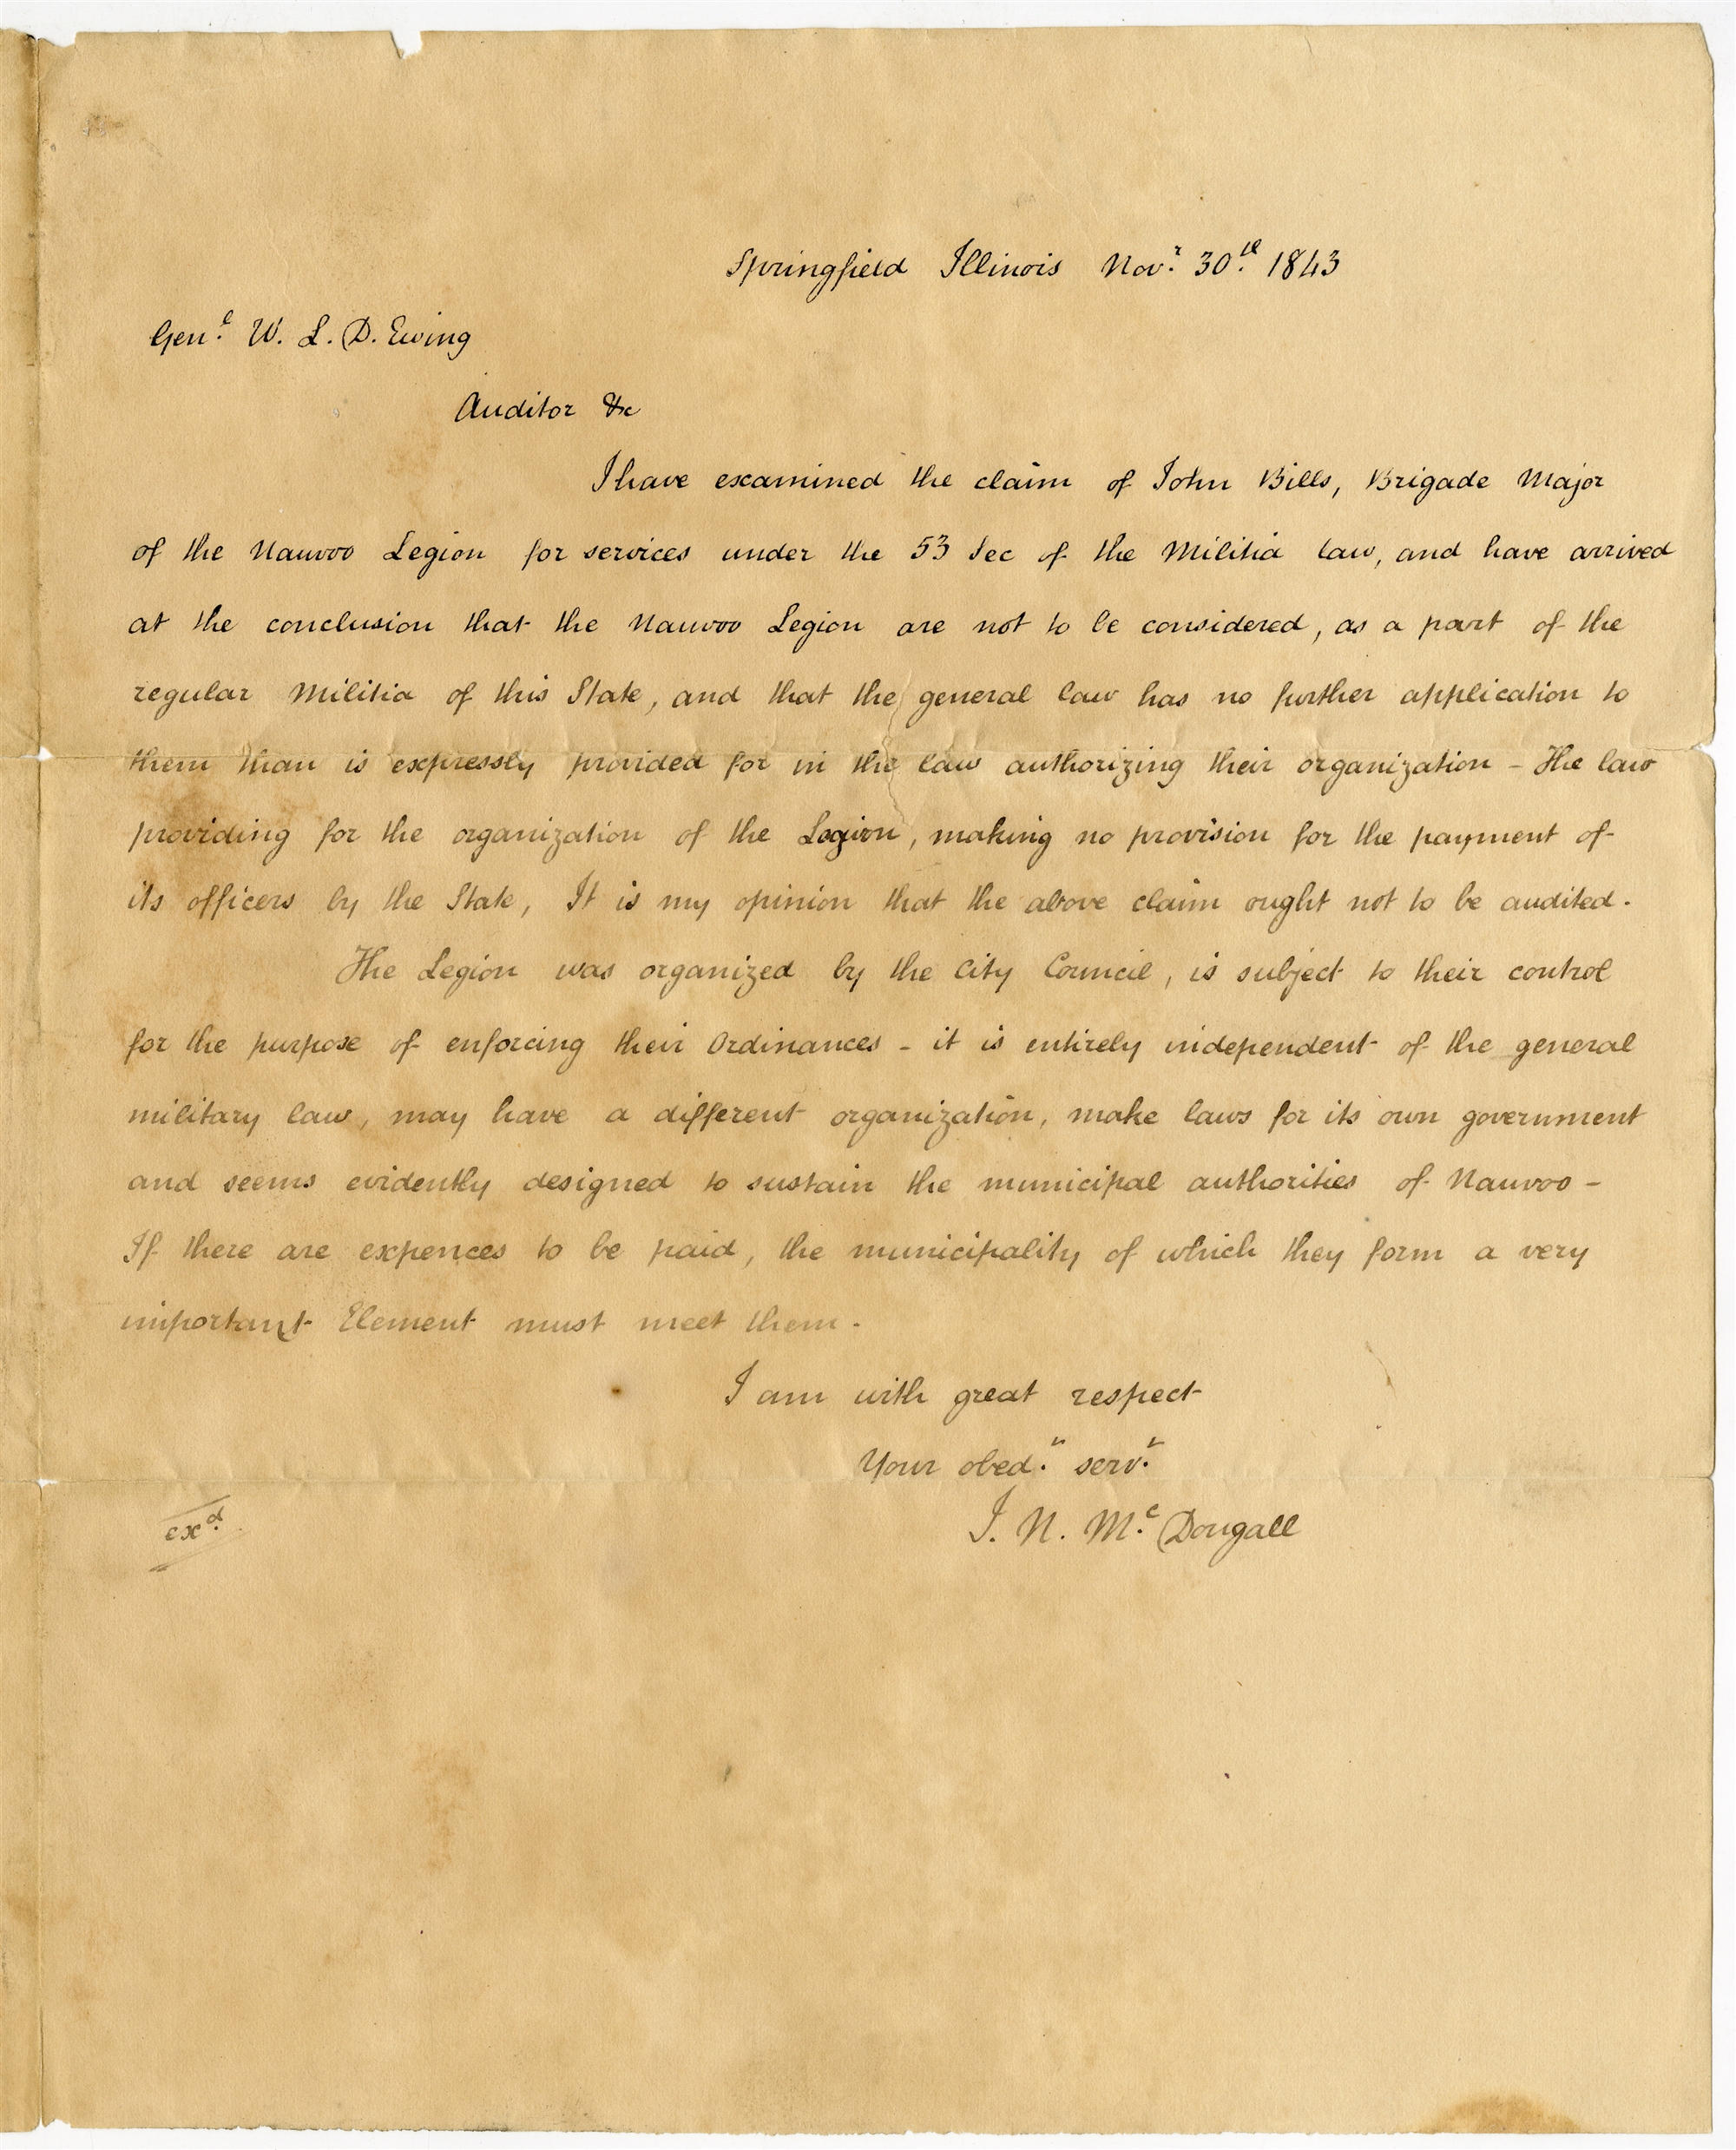 Springfield Illinois Nov.r 30.th 1843
Gen.l W. L. D. Ewing
Auditor &c
I have examined the claim of John Bills, Brigade Major
of the Nauvoo Legion for services under the 53 Sec of the Militia law, and have arrived
at the conclusion that the Nauvoo Legion are not to be considered, as a part of the
regular Militia of this State, and that the general law has no further application to
them than is expressly provided for in the law authorizing their organization – The law
providing for the organization of the Legion, making no provision for the payment of
its officers by the State, It is my opinion that the above claim ought not to be audited.
The Legion was organized by the City Council, is subject to their control
for the purpose of enforcing their Ordinances – it is entirely independent of the general
military law, may have a different organization, make laws for its own government
and seems evidently designed to sustain the municipal authorities of Nauvoo –
If there are expences to be paid, the municipality of which they form a very
important Element must meet them.
I am with great respect
Your obed.t serv.t
J. N. M.c Dougall
ex.d